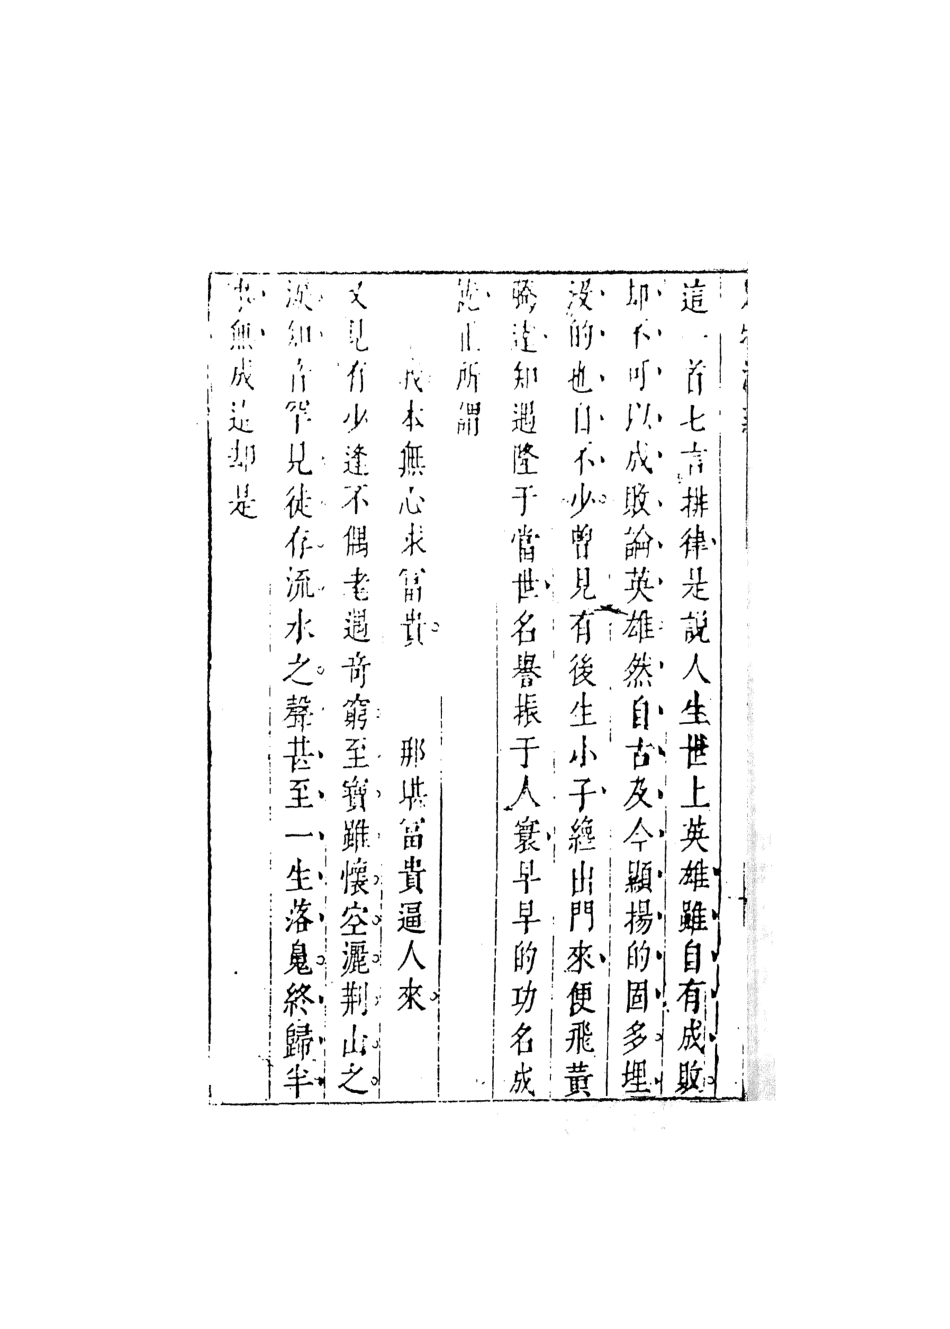 這一首七言排律是說人生世上英雄雖自有成敗
却不可以成敗論英雄然自古及今顯揚的固多埋
没的也自不少曾見有後生小子纔出門來便飛黃
騰達知遇隆于當世名譽振于人寰早早的功名成
就正所謂
我本無心求富貴　那堪富貴逼人來
又見有少逢不偶老遇奇窮至寶雖懷空灑荆山之
淚知音罕見徒存流水之聲甚至一生落鬼終歸半
無成這却是